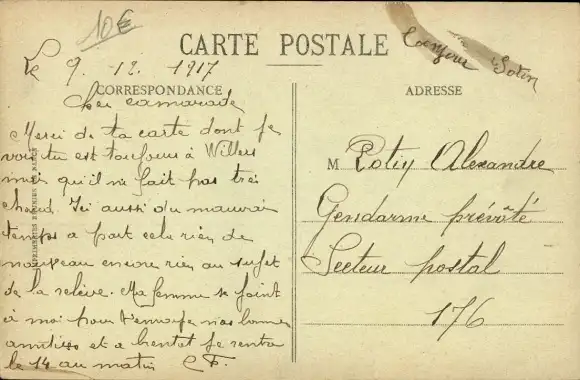 10€
CARTE POSTALE
Le 9. 12. 1917
CORRESPONDANCE
Cher camarade
Merci de ta carte dont je
vois tu est toujours à Willers
mais qu'il ne fait pas très
chaud. Ici aussi du mauvais
temps a part cela rien de
nouveau encore rien au sujet
de la relève. Ma femme se joint
à moi pour t'envoyer nos bonnes
amitiés et a bientot je rentre
le 14 au matin CF.
ADRESSE
M Potiy Alexandre
Gendarme prévôté
Secteur postal
176